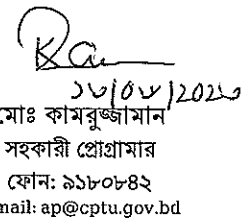 মোঃ কামরুজ্জামান
সহকারী প্রোগ্রামার
ফোন: ৯১৮০৮৪২
mail: ap@cptu.gov.bd